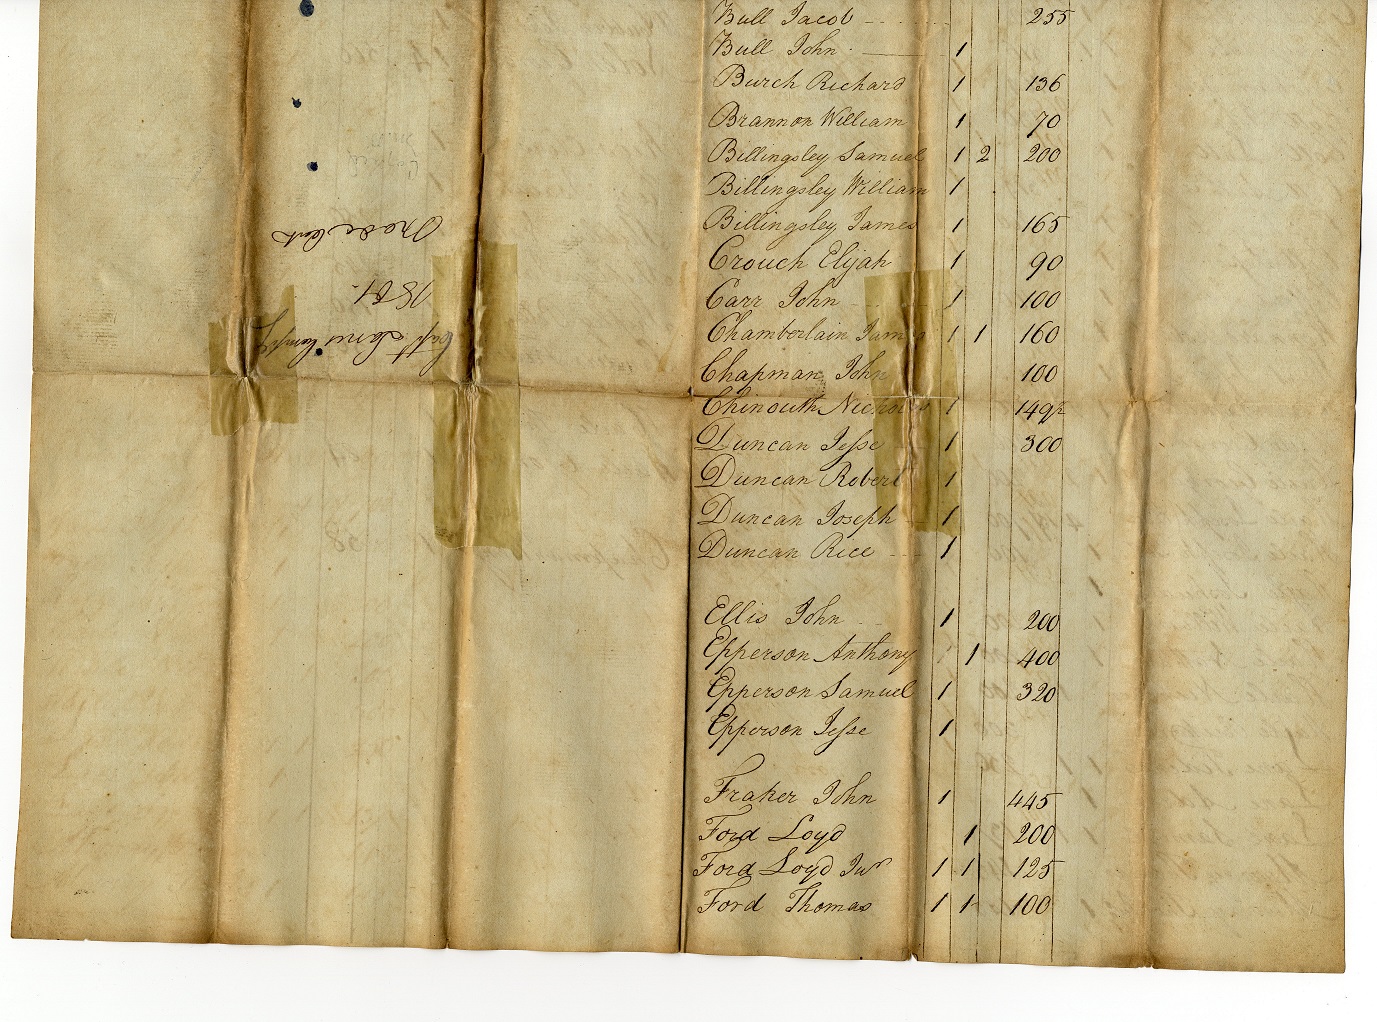 Bull Jacob 255
Bull John 1
Burch Richard 1 136
Brannon William 1 70
Billingsley Samuel 1 2 200
Billingsley William 1
Billingsley James 1 165
Crouch Elijah 1 90
Carr John 1 100
Chamberlain James 1 1 160
Chapman John 100
Chinouth Nicholas 1 149½
Duncan Jesse 1 300
Duncan Robert 1
Duncan Joseph 1
Duncan Rice 1
Ellis John 1 200
Epperson Anthony 1 400
Epperson Samuel 1 320
Epperson Jesse 1
Fraker John 1 445
Ford Loyd 1 200
Ford Loyd Junr 1 1 125
Ford Thomas 1 1 100
Capt
1801.